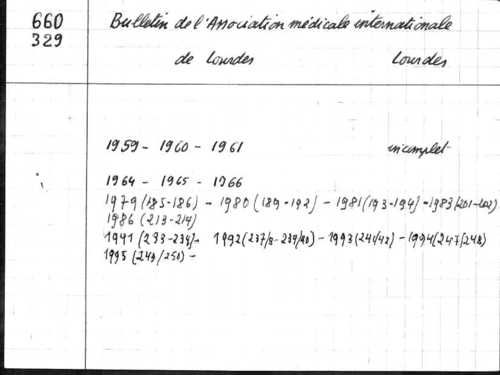 660 Bulletin de l'Association médicale internationale
329
de Lourdes Lourdes
1959 - 1960 - 1961 incomplet
1964 - 1965 - 1966
1979 (185-186) - 1980 (189-192) - 1981 (193-194) - 1983 (201-202)
1986 (213-214)
1991 (233-234) - 1992 (237/8-239/40) - 1993 (241/42) - 1994 (247/248)
1995 (249/250) -